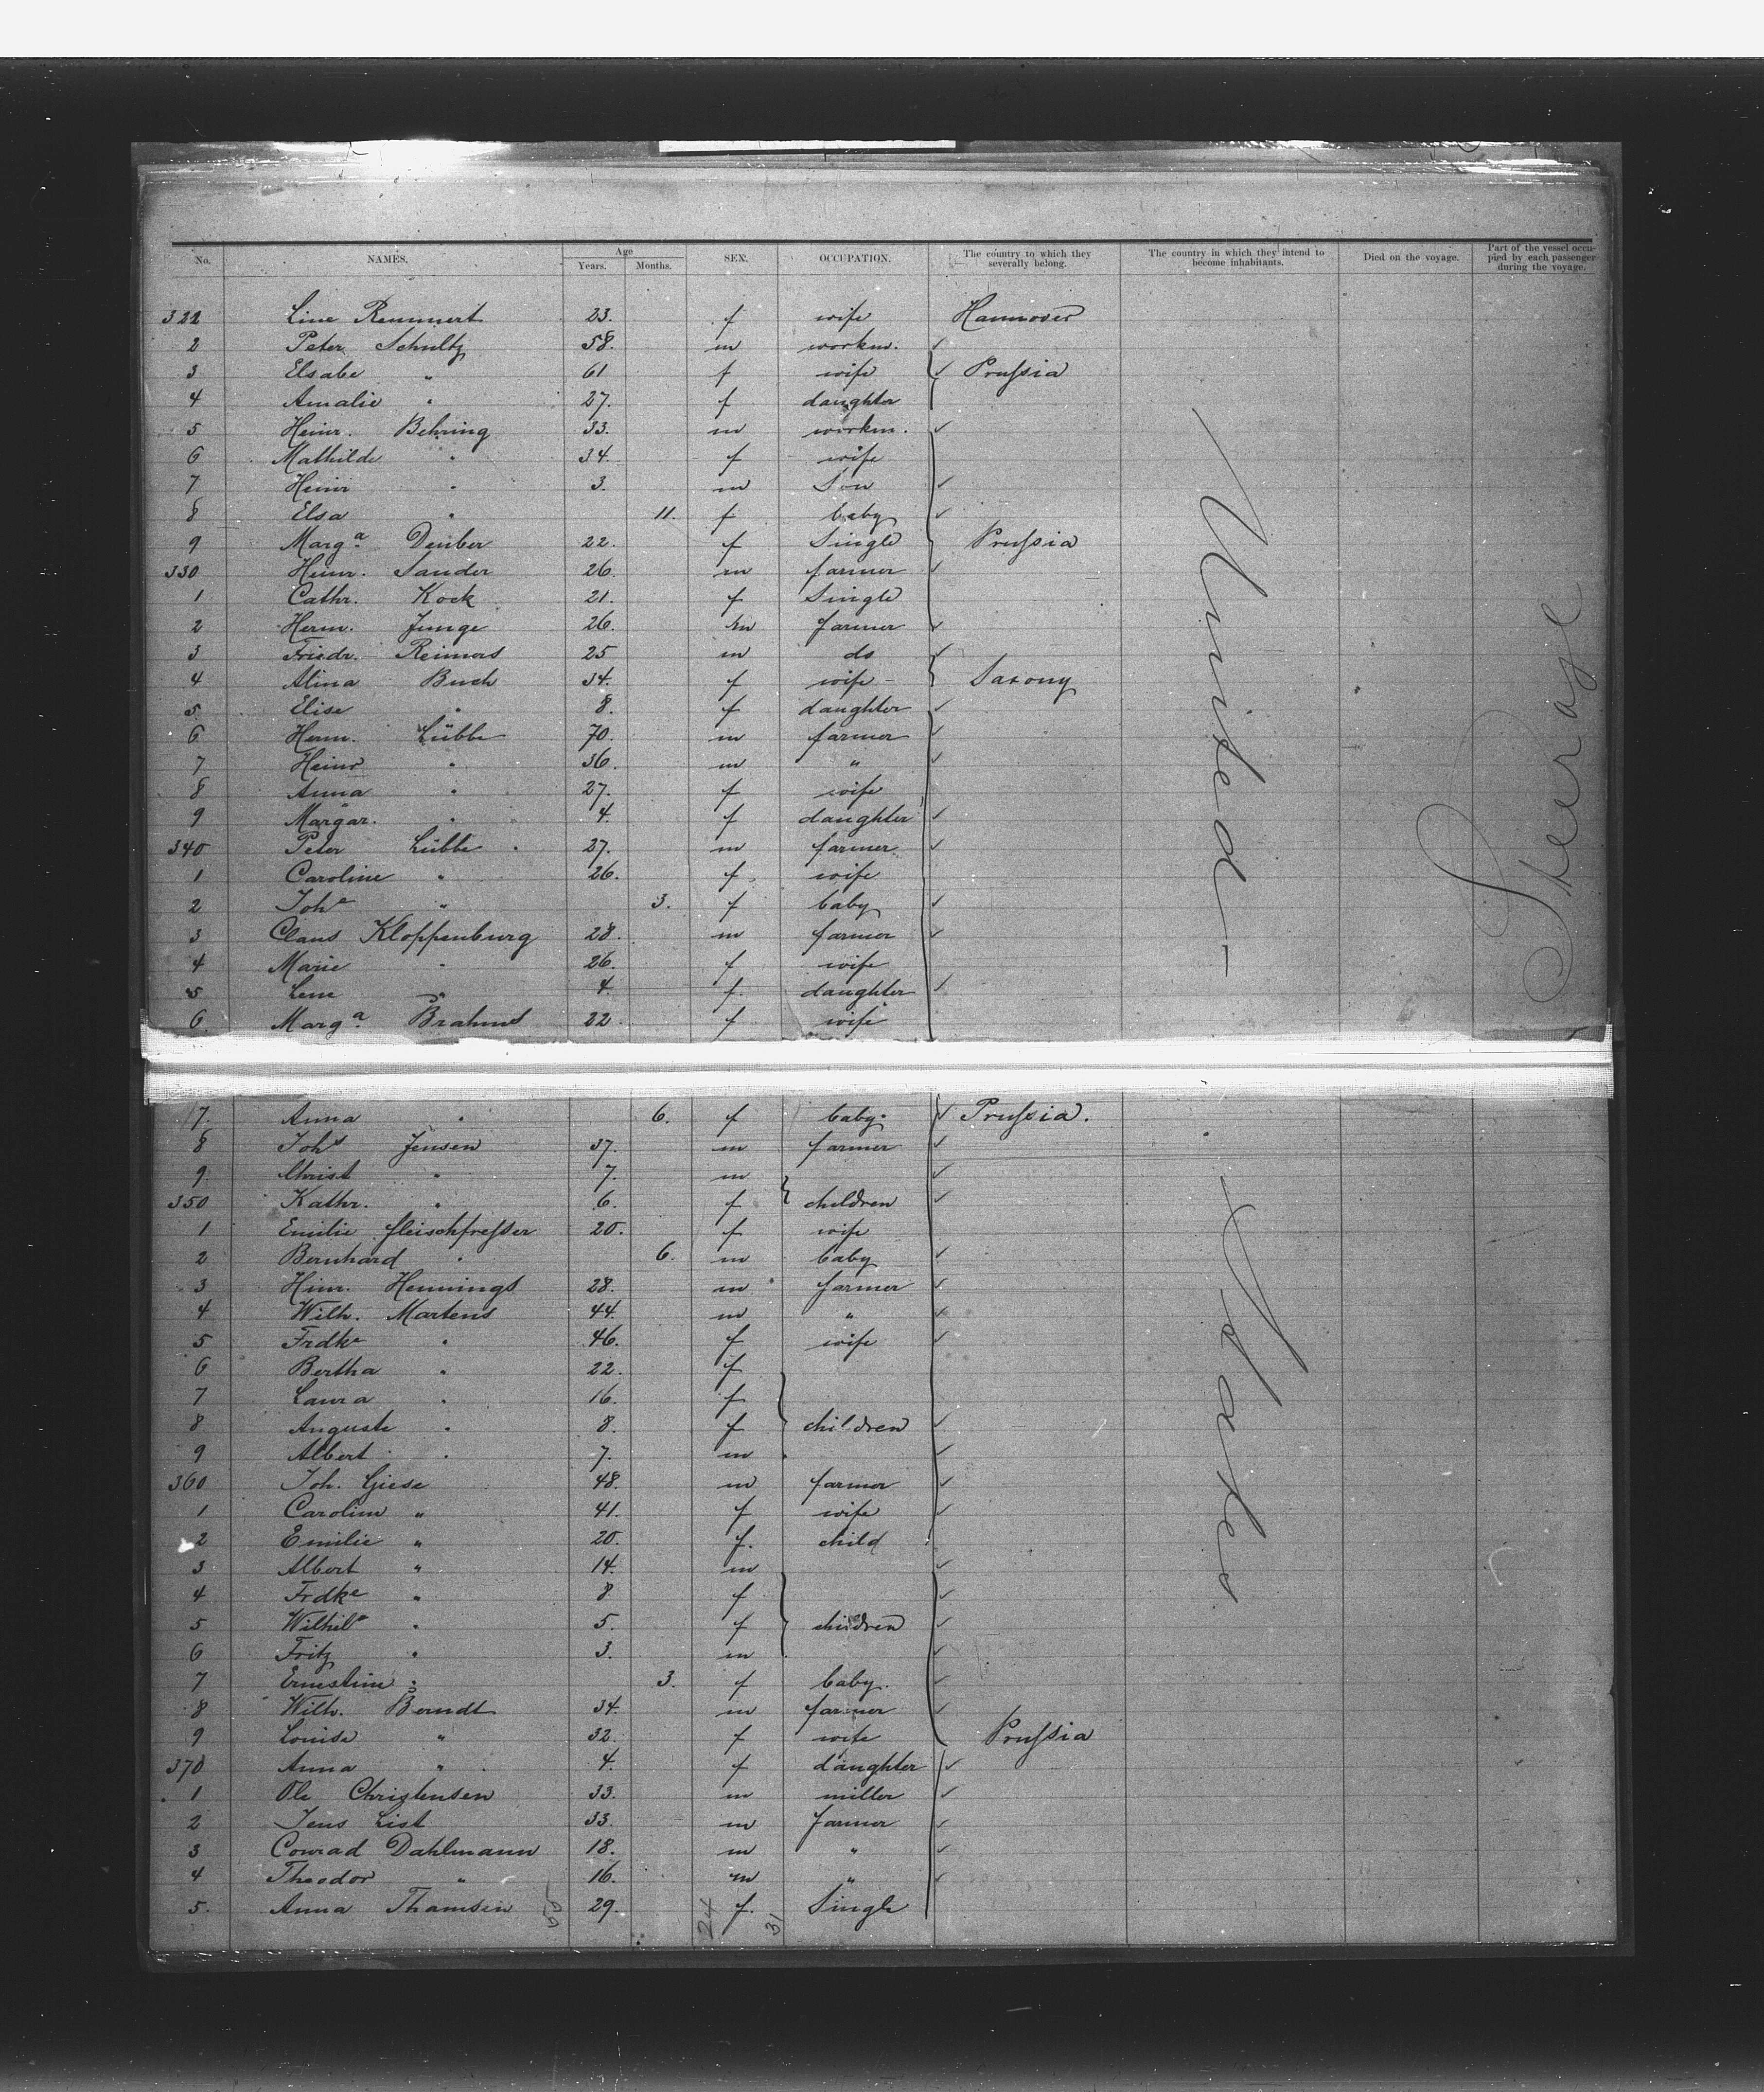 No. NAMES. Age Years. Months. SEX. OCCUPATION. The country to which they severally belong. The country in which they intend to become inhabitants. Died on the voyage. Part of the vessel occupied by each passenger during the voyage.
321 Line Remmert 23. f wife Hannover
2 Peter Schultz 58. m workm.
3 Elsabe " 61 f wife Prussia
4 Amalie " 27. f daughter
5 Heinr. Behring 33. m workm.
6 Mathilde " 34. f wife
7 Heinr " 3. m Son
8 Elsa " 11. f baby
9 Marga. Deuber 22. f Single Prussia
330 Heinr. Sander 26. m farmer
1 Cathr. Kock 21. f Single
2 Herm. Junge 26. m farmer
3 Friedr. Reimers 25 m do
4 Alina Buch 34. f wife Saxony
5 Elise " 8. f daughter
6 Herm. Lübbe 70. m farmer
7 Heinr " 36. m "
8 Anna " 27. f wife
9 Margar. " 4. f daughter
340 Peter Lübbe 27. m farmer
1 Caroline " 26. f wife
2 Johe " 3. f baby
3 Claus Kloppenburg 28. m farmer
4 Marie " 26. f wife
5 Lene " 4. f. daughter
6. Marga. Brahms 22. f wife
7. Anna " 6. f baby Prussia.
8 Johs Jensen 37. m farmer
9. Christ " 7. m
350 Kathr. " 6. f children
1 Emilie fleischfresser 20. f wife
2 Bernhard " 6. m baby
3 Hinr. Hennings 28. m farmer
4 Wilh. Martens 44. m "
5 Frdke " 46. f wife
6 Bertha " 22. f
7 Laura " 16. f
8 Auguste " 8. f children
9 Albert " 7. m
360 Joh. Giese 48. m farmer
1 Carolin " 41. f wife
2 Emilie " 20. f. child
3 Albert " 14. m
4 Frdke " 8 f
5 Wilhile " 5. f children
6 Fritz " 3. m
7 Ernestine " 3. f baby.
8 Wilh. Berndt 34. m farmer
9 Louise " 32. f wife Prussia
370 Anna " 4. f daughter
1 Ole Christensen 33. m miller
2 Jens List 33. m farmer
3 Conrad Dahlmann 18. m "
4 Theodor " 16. m "
5. Anna Thamsen 29. f. Single
24 31
United
States
Steerage